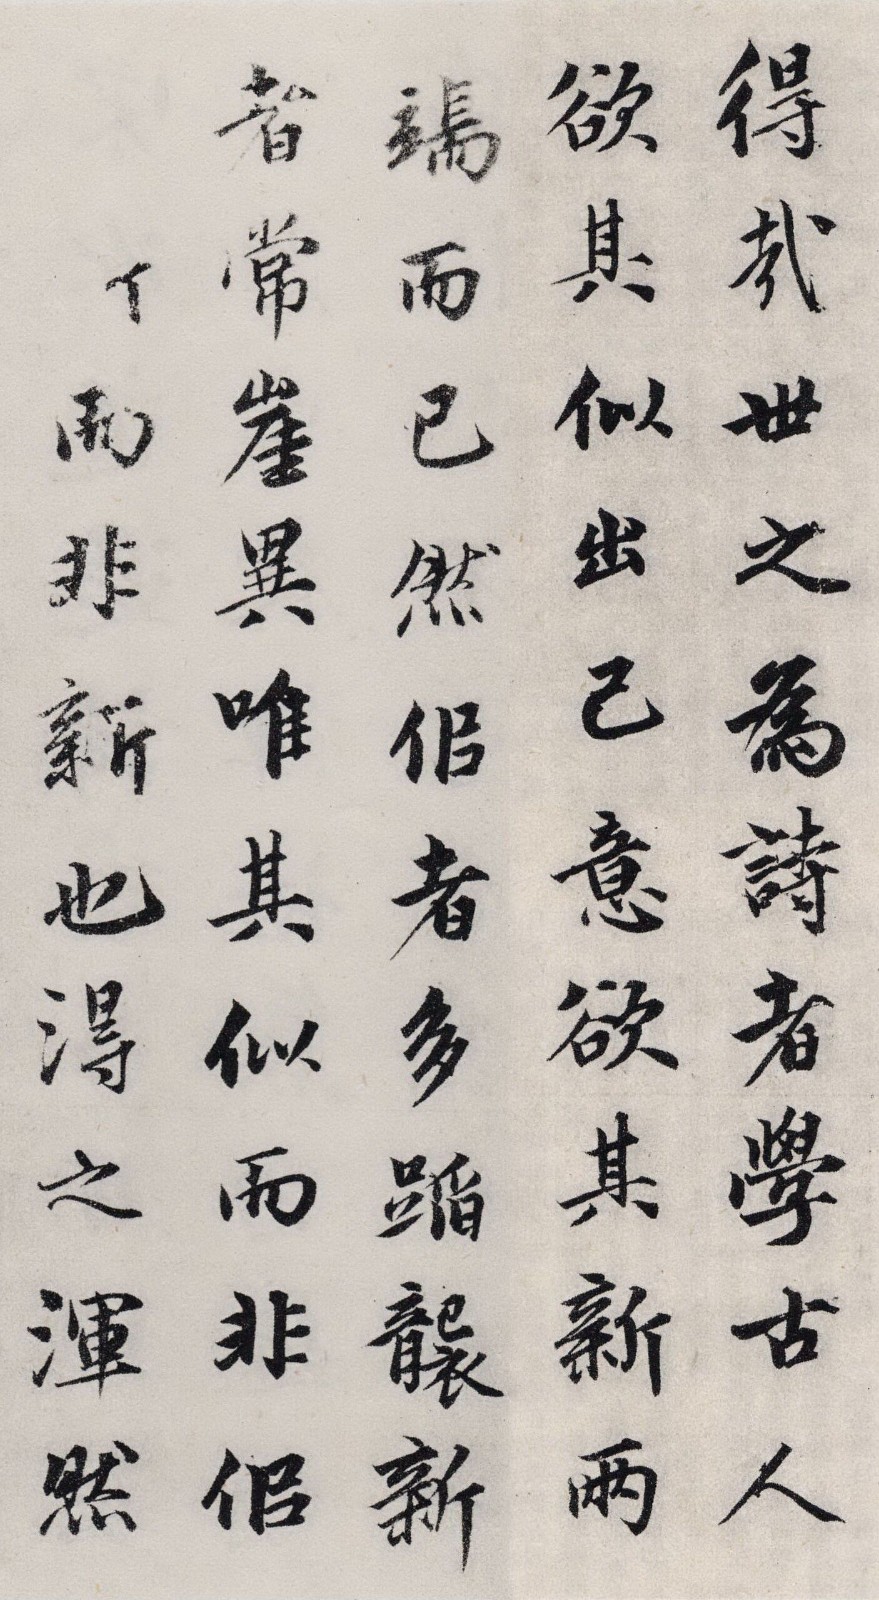 得哉世之為詩者學古人
欲其似出己意欲其新兩
端而已然佀者多蹈襲新
者常崖異唯其似而非佀
而非新也得之渾然